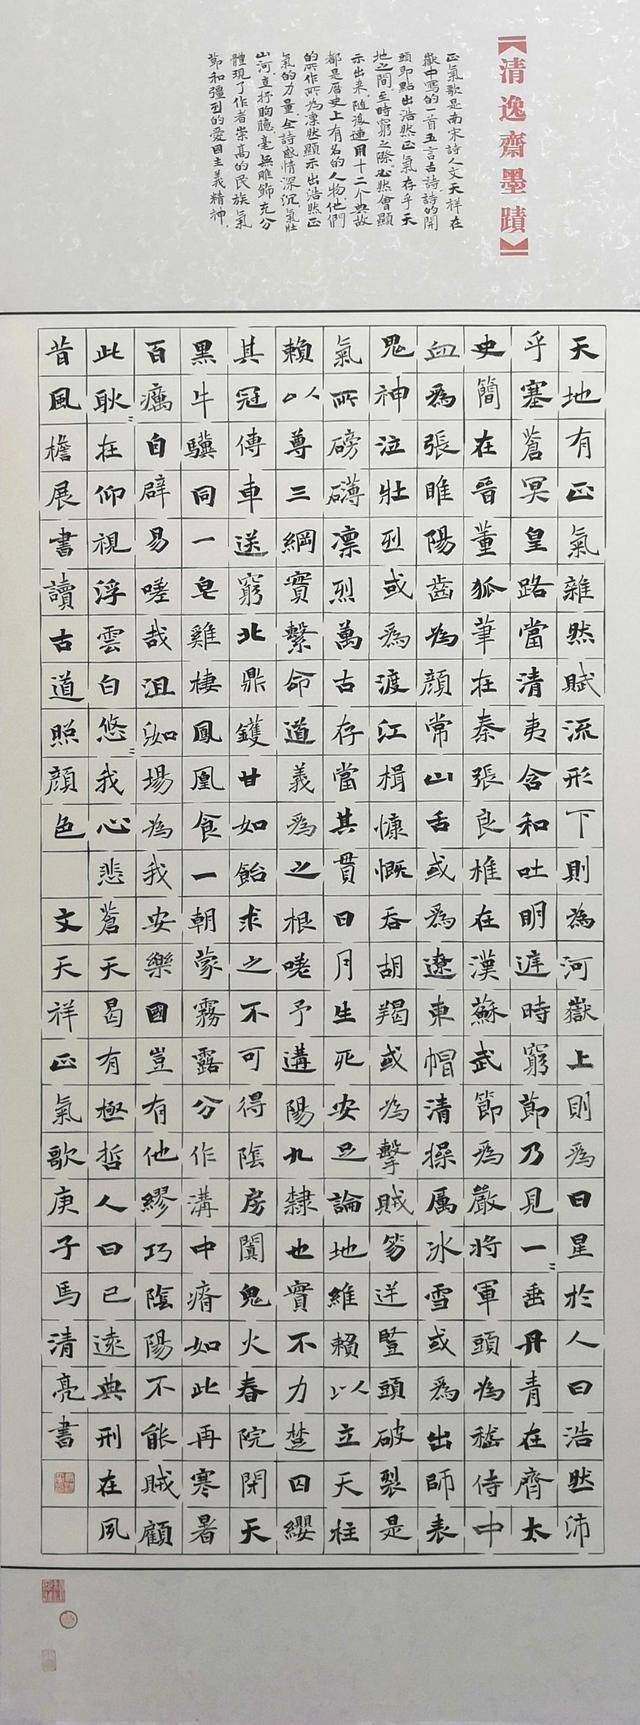 【清逸齋墨蹟】
正氣歌是南宋詩人文天祥在
獄中寫的一首五言古詩詩的開
頭即點出浩然正氣存乎天
地之間至時窮之際必然會顯
示出来,随後連用十二个典故
都是歷史上有名的人物他們
的所作所為凛然顯示出浩然正
氣的力量.全詩感情深沉氣壯
山河.直抒胸臆毫無雕飾充分
體現了作者崇高的民族氣
節和强烈的愛国主義精神.
天地有正氣雜然賦流形下則為河嶽上則為日星於人曰浩然沛
乎塞蒼冥皇路當清夷含和吐明庭時窮節乃見一〻垂丹青在齊太
史簡在晉董狐筆在秦張良椎在漢蘇武節為嚴將軍頭為嵇侍中
血為張睢陽齒為顏常山舌或為遼東帽清操厲冰雪或為出師表
鬼神泣壯烈或為渡江楫慷慨吞胡羯或為擊賊笏逆豎頭破裂是
氣所磅礴凛烈萬古存當其貫日月生死安足論地維賴以立天柱
賴以尊三綱實繫命道義為之根嗟予遘陽九隸也實不力楚囚纓
其冠傳車送窮北鼎鑊甘如飴求之不可得陰房闃鬼火春院閉天
黑牛驥同一皂雞棲鳳凰食一朝蒙霧露分作溝中瘠如此再寒暑
百癘自辟易嗟哉沮洳場為我安樂國豈有他繆巧陰陽不能賊顧
此耿〻在仰視浮雲白悠〻我心悲蒼天曷有極哲人日已遠典刑在夙
昔風檐展書讀古道照顏色 文天祥正氣歌庚子馬清亮書